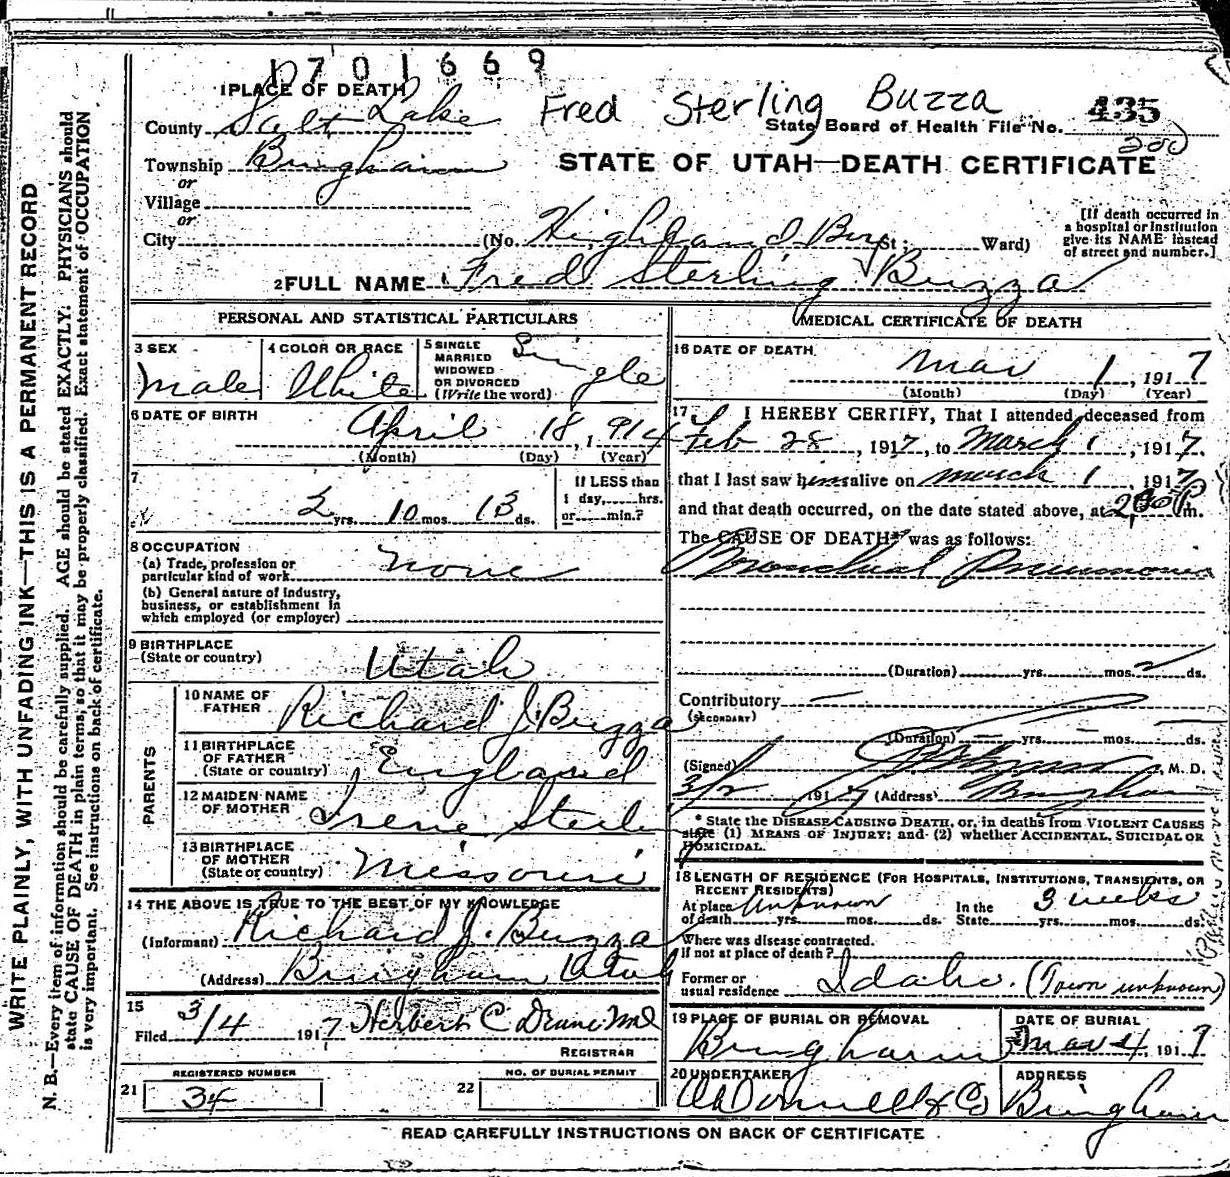 1701669
1 PLACE OF DEATH
County Salt Lake
Fred Sterling Buzza
State Board of Health File No. 435
200
Township Bingham
or
Village
or
STATE OF UTAH—DEATH CERTIFICATE
City (No. Highland Boy St.; Ward)
[If death occurred in
a hospital or institution
give its NAME instead
of street and number.]
2 FULL NAME Fred Sterling Buzza
PERSONAL AND STATISTICAL PARTICULARS
3 SEX
Male
4 COLOR OR RACE
White
5 SINGLE
MARRIED
WIDOWED
OR DIVORCED
(Write the word)
Single
6 DATE OF BIRTH
April 18, 1914
(Month) (Day) (Year)
7
2 yrs. 10 mos. 13 ds.
If LESS than
1 day, hrs.
or min.?
8 OCCUPATION
(a) Trade, profession or
particular kind of work
none
(b) General nature of industry,
business, or establishment in
which employed (or employer)
9 BIRTHPLACE
(State or country)
Utah
PARENTS
10 NAME OF
FATHER
Richard J. Buzza
11 BIRTHPLACE
OF FATHER
(State or country)
England
12 MAIDEN NAME
OF MOTHER
Irene Sterling
13 BIRTHPLACE
OF MOTHER
(State or country)
Missouri
14 THE ABOVE IS TRUE TO THE BEST OF MY KNOWLEDGE
(Informant) Richard J. Buzza
(Address) Bingham Utah
15
Filed 3/4 1917 Herbert C. MD
REGISTRAR
REGISTERED NUMBER
21 34
NO. OF BURIAL PERMIT
22
MEDICAL CERTIFICATE OF DEATH
16 DATE OF DEATH
Mar 1, 1917
(Month) (Day) (Year)
17 I HEREBY CERTIFY, That I attended deceased from
Feb 28, 1917, to March 1, 1917,
that I last saw him alive on march 1 1917
and that death occurred, on the date stated above, at 2.30 P m.
The CAUSE OF DEATH* was as follows:
Bronchial Pneumonia
(Duration) yrs. mos. 2 ds.
Contributory
(SECONDARY)
(Duration) yrs. mos. ds.
(Signed) M. D.
3/2 1917 (Address) Bingham
* State the DISEASE CAUSING DEATH, or, in deaths from VIOLENT CAUSES
state (1) MEANS OF INJURY; and (2) whether ACCIDENTAL, SUICIDAL OR
HOMICIDAL.
18 LENGTH OF RESIDENCE (FOR HOSPITALS, INSTITUTIONS, TRANSIENTS, OR
RECENT RESIDENTS)
At place
of death unknown yrs. mos. ds.
In the
State 3 weeks yrs. mos. ds.
Where was disease contracted.
if not at place of death?
Former or
usual residence Idaho. (Town unknown)
19 PLACE OF BURIAL OR REMOVAL
Bingham
DATE OF BURIAL
Mar 4, 1917
20 UNDERTAKER
O'Donnell & Co
ADDRESS
Bingham
READ CAREFULLY INSTRUCTIONS ON BACK OF CERTIFICATE
WRITE PLAINLY, WITH UNFADING INK—THIS IS A PERMANENT RECORD
N. B.—Every item of information should be carefully supplied. AGE should be stated EXACTLY. PHYSICIANS should
state CAUSE OF DEATH in plain terms, so that it may be properly classified. Exact statement of OCCUPATION
is very important. See instructions on back of certificate.